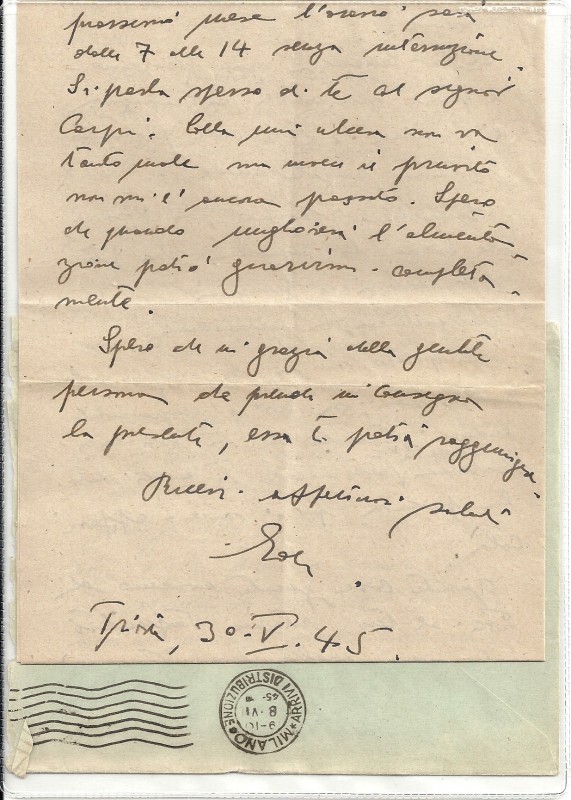 prossimo mese l'orario sarà
dalle 7 alle 14 senza interruzione.
Si parla spesso di te al signor
Carpi. Colla mia ulcera non va
tanto male ma invece il prurito
non mi è ancora passato. Spero
che quando migliorerà l'alimenta-
zione potrò guarirmi completa-
mente.
Spero che in grazia della gentile
persona che prende in consegna
la presente, essa ti potrà raggiungere.
Ricevi affettuosi saluti
30-V.45.
MILANO
ARRIVI DISTRIBUZIONE
8.VI
45